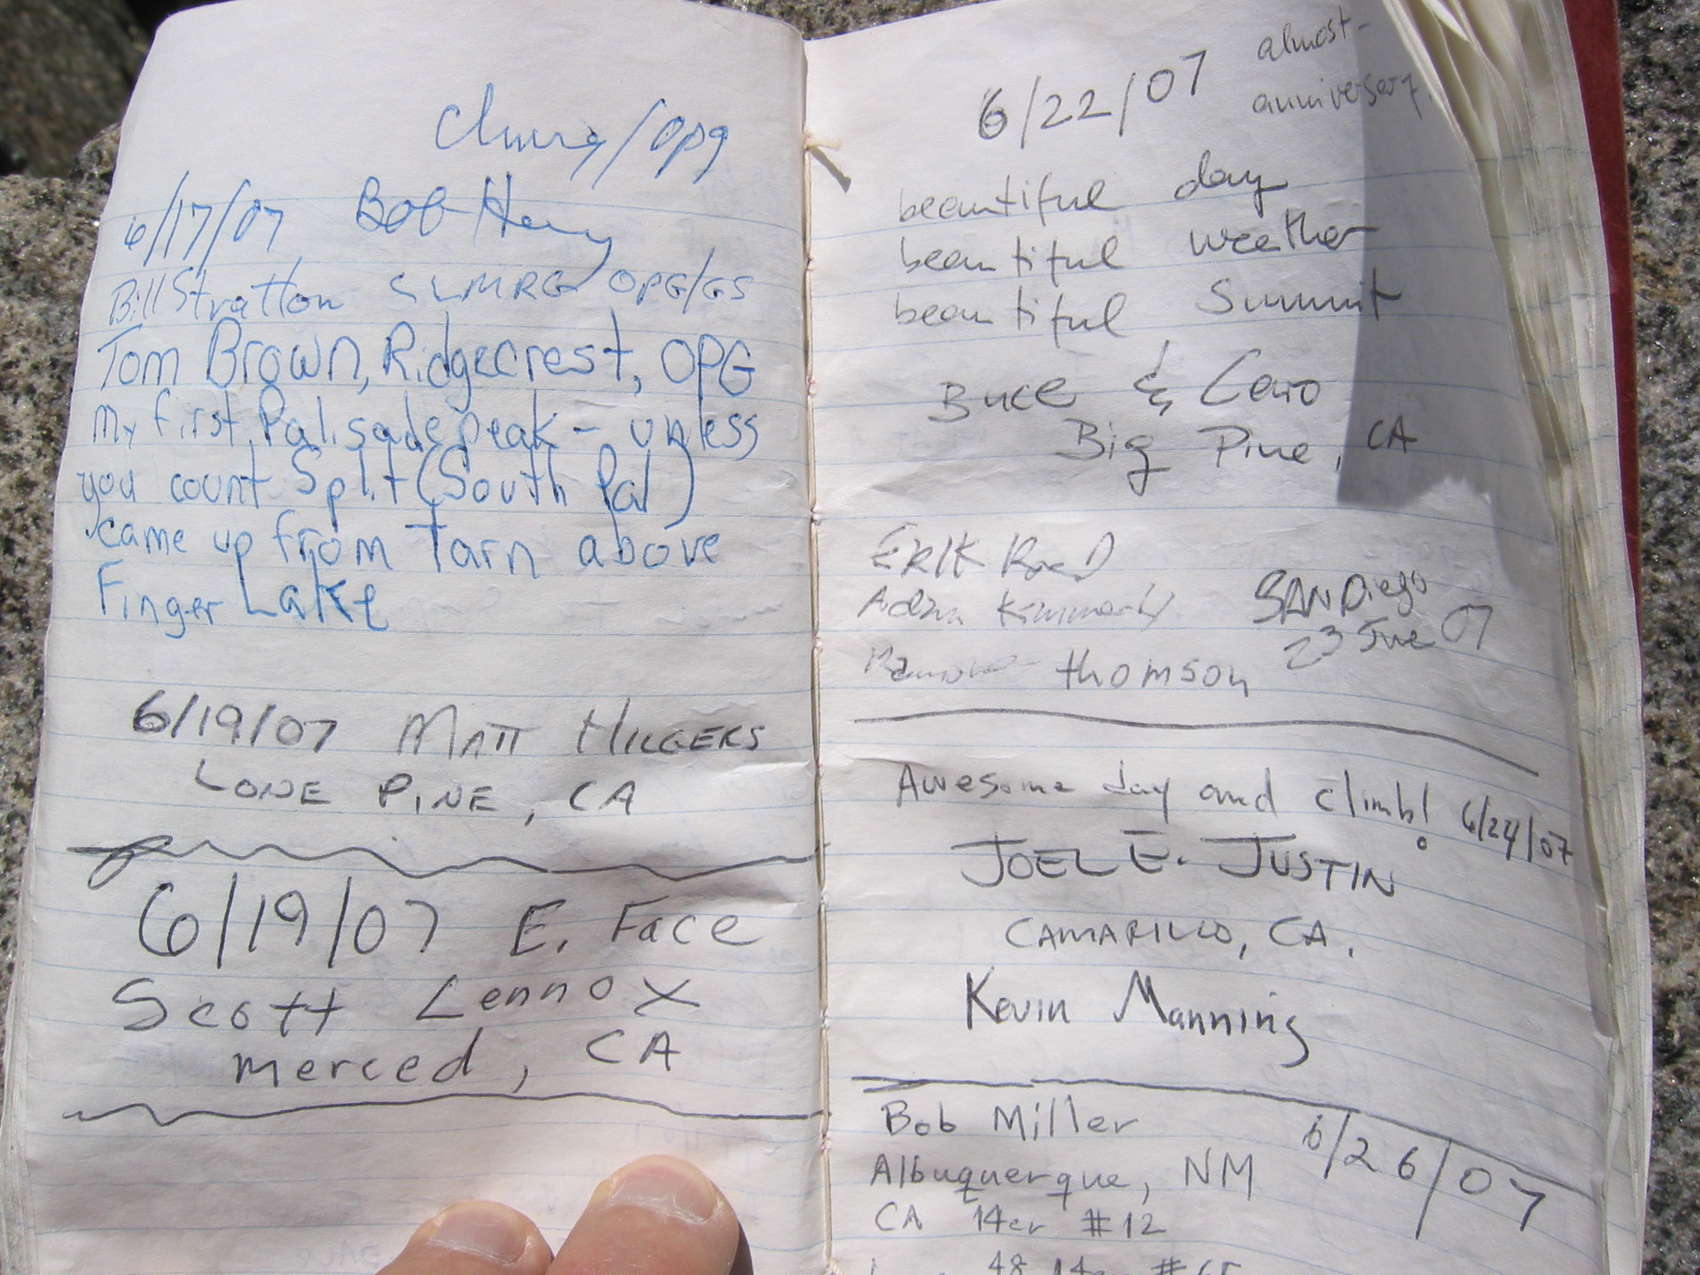 /OPG
6/17/07 Bob Henry
Bill Stratton SLMRG OPG/GS
Tom Brown, Ridgecrest, OPG
My first Palisade peak - unless
you count Split (South Pal)
came up from Tarn above
Finger Lake
6/19/07 MATT HILGERS
LONE PINE, CA
6/19/07 E. Face
Scott Lennox
merced, CA
6/22/07 almost-
anniversary.
beautiful day
beautiful weather
beautiful Summit
&
Big Pine, CA
ERIK
Adam
SAN Diego
23 June 07
thomson
Awesome day and climb! 6/24/07
JOEL E. JUSTIN
CAMARILLO, CA.
Kevin Manning
Bob Miller 6/26/07
Albuquerque, NM
CA 14er #12
48 #65